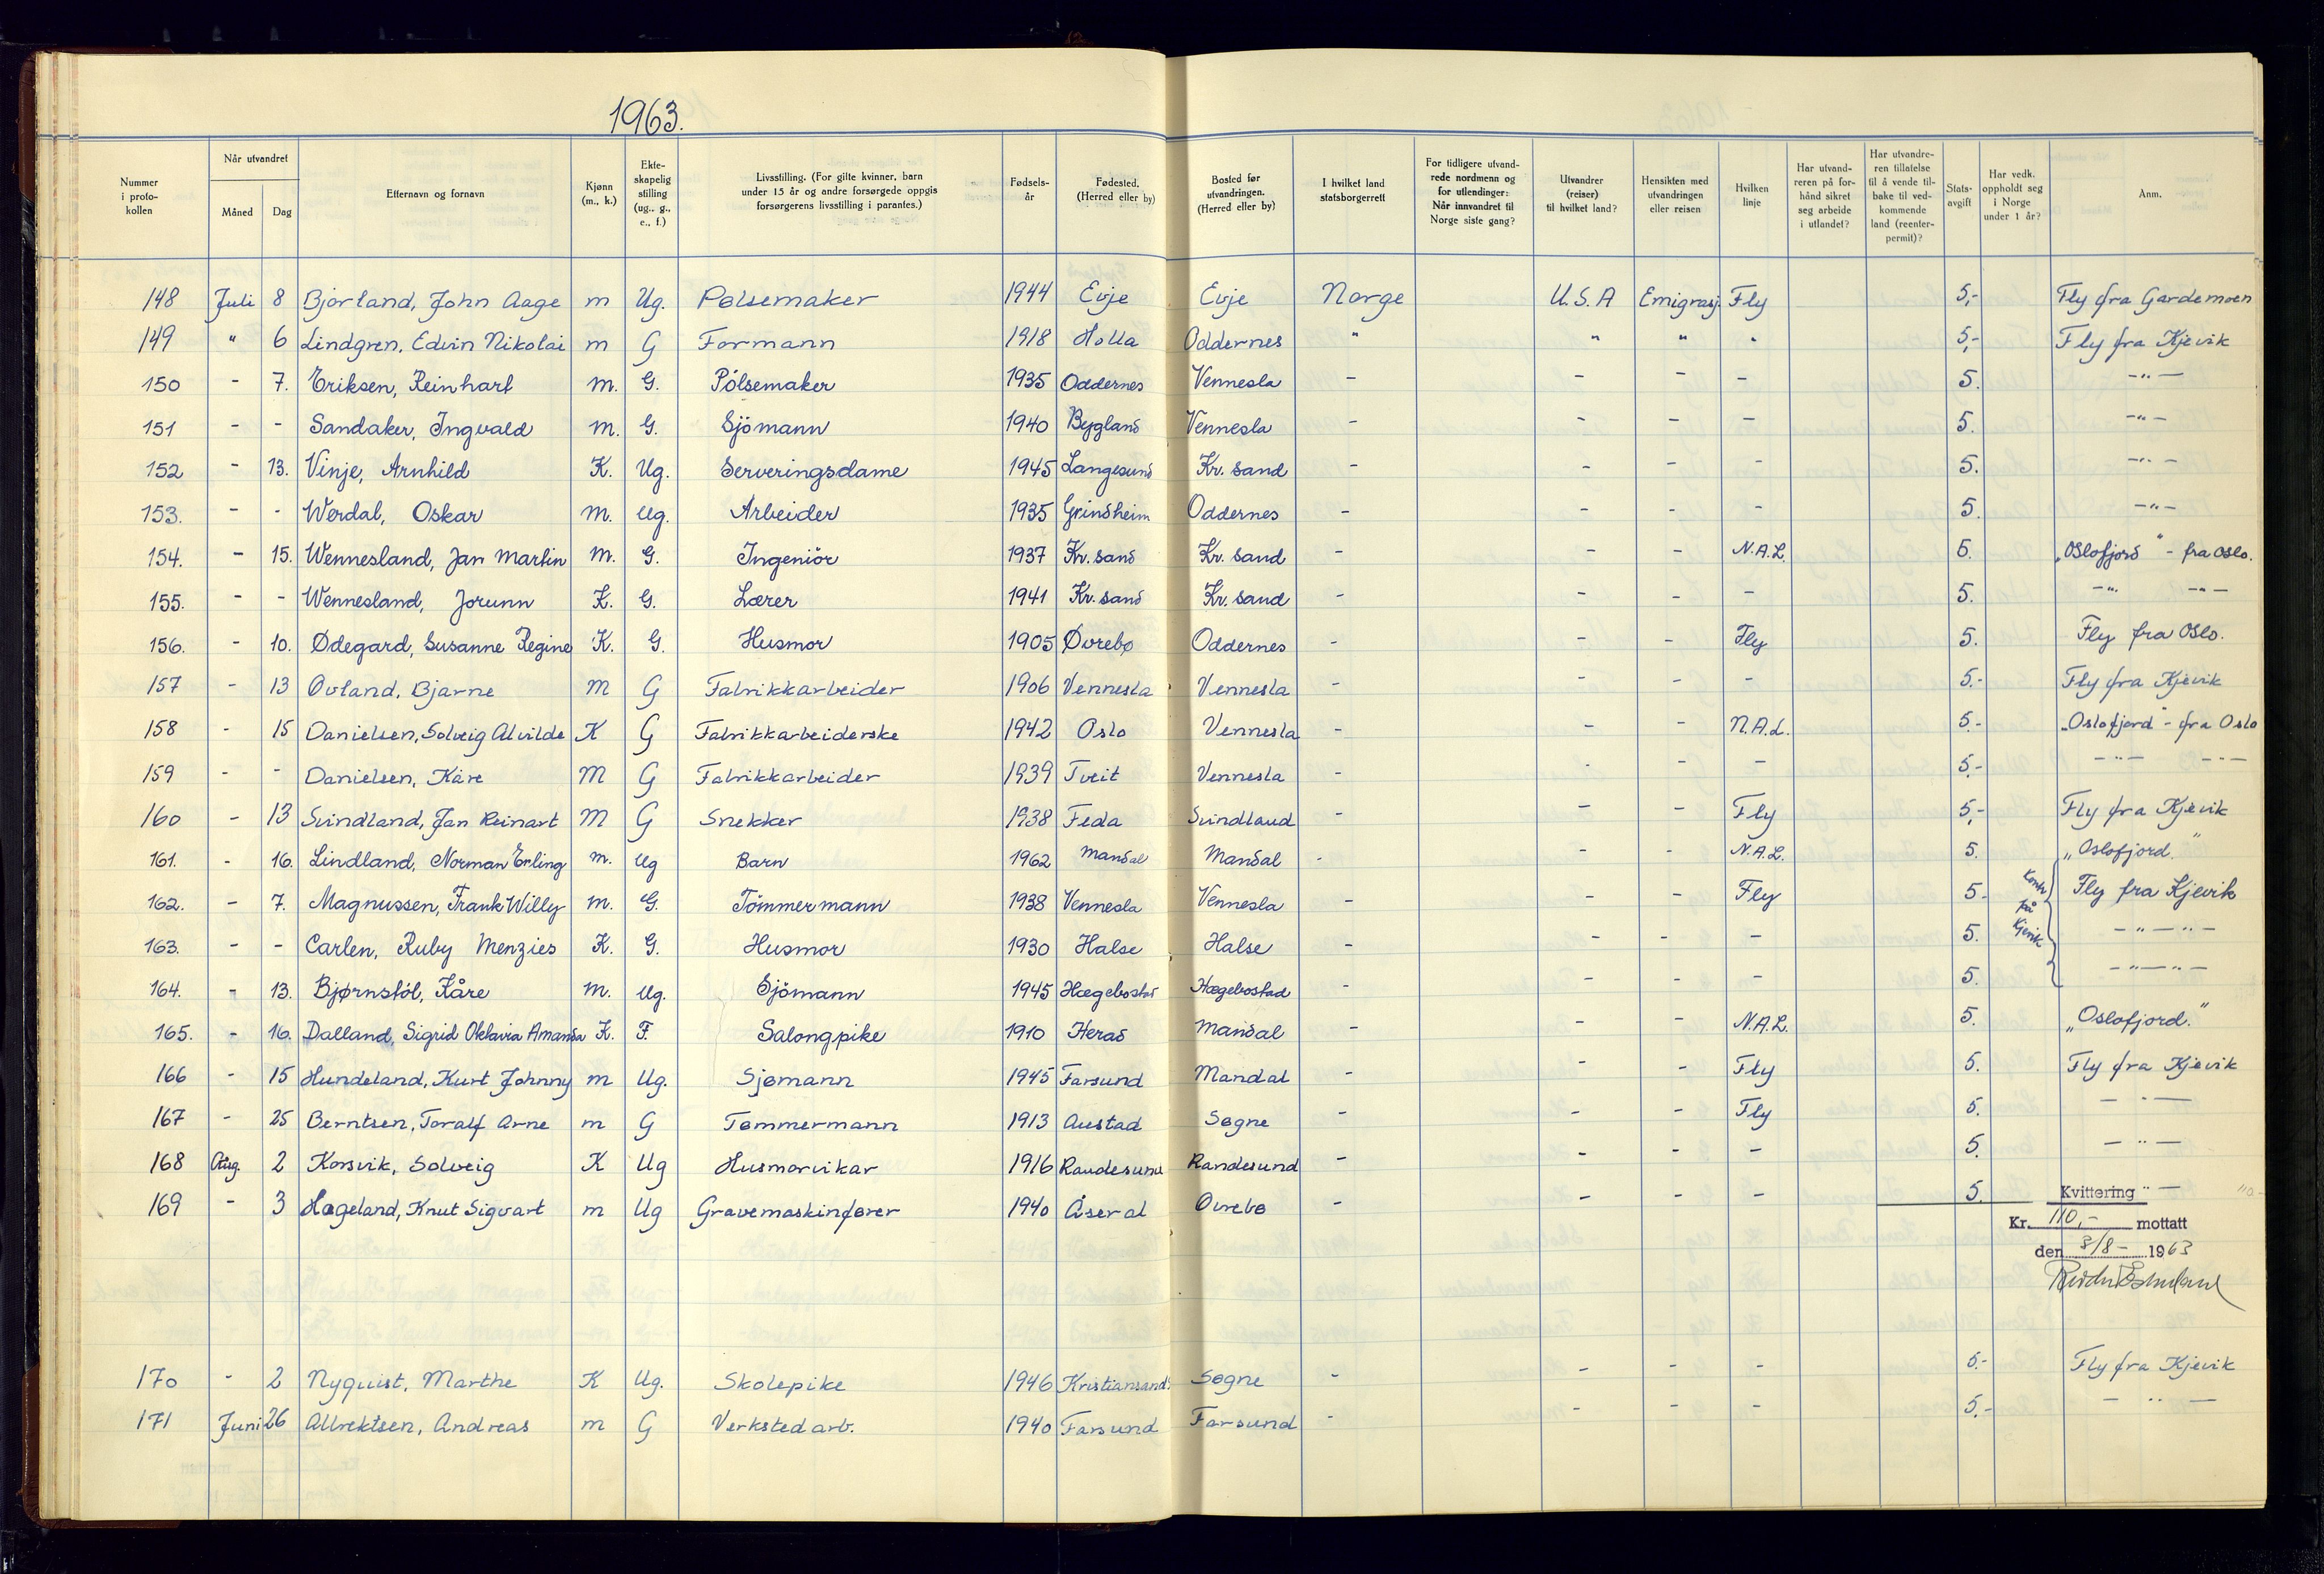 1963.
Nummer i protokollen | Når utvandret Måned | Dag | Etternavn og fornavn | Kjønn (m., k.) | Ekteskapelig stilling (ug., g., e., f.) | Livsstilling. (For gifte kvinner, barn under 15 år og andre forsørgede oppgis forsørgerens livsstilling i parantes.) | Fødselsår | Fødested. (Herred eller by) | Bosted før utvandringen. (Herred eller by) | I hvilket land statsborgerrett | For tidligere utvandrede nordmenn og for utlendinger: Når innvandret til Norge siste gang? | Utvandrer (reiser) til hvilket land? | Hensikten med utvandringen eller reisen | Hvilken linje | Har utvandreren på forhånd sikret seg arbeide i utlandet? | Har utvandreren tillatelse til å vende tilbake til vedkommende land (reenterpermit)? | Statsavgift | Har vedk. oppholdt seg i Norge under 1 år? | Anm.
148 Juli 8 Bjorland, John Aage m Ug. Pølsemaker 1944 Evje Evje Norge U.S.A Emigrasj. Fly 5,- Fly fra Gardemoen
149 " 6 Lindgren, Edvin Nikolai m G Formann 1918 Holla Oddernes " " " " 5,- Fly fra Kjevik
150 - 7. Eriksen, Reinhart m. G. Pölsemaker 1935 Oddernes Vennesla - - - - 5. -"-
151 - - Sandaker, Ingvald m. G. Sjömann 1940 Bygland Vennesla - - - - 5. -"-
152 - 13. Vinje, Arnhild K. Ug. Serveringsdame 1945 Langesund Kr. sand - - - - 5. -"-
153. - - Werdal, Oskar m. ug. Arbeider 1935 Grindheim Oddernes - - - - 5. -"-
154. - 15. Wennesland, Jan Martin m. G. Ingeniör 1937 Kr. sand Kr. sand - - - N.A.L. 5. "Oslofjord" - fra Oslo.
155. - - Wennesland, Jorunn K. G. Lærer 1941 Kr. sand Kr. sand - - - - 5. -"- -"-
156. - 10. Ødegard, Susanne Regine K. G. Husmor 1905 Øvrebø Oddernes - - - Fly 5. Fly fra Oslo.
157 - 13 Ovland, Bjarne M G Fabrikkarbeider 1906 Vennesla Vennesla - - - - 5.- Fly fra Kjevik
158 - 15 Danielsen, Solveig Alvilde K G Fabrikkarbeiderske 1942 Oslo Vennesla - - - N.A.L. 5.- "Oslofjord" - fra Oslo
159 - - Danielsen, Kåre M G Fabrikkarbeider 1939 Tveit Vennesla - - - 5,- -"- -"-
160 - 13 Svindland, Jan Reinart M G Snekker 1938 Feda Svindland - - - Fly 5,- Fly fra Kjevik
161. - 16. Lindland, Norman Erling m. ug Barn 1962 Mandal Mandal - - - N.A.L. 5. "Oslofjord."
162. - 7. Magnussen, Frank Willy m. G. Tömmermann 1938 Vennesla Vennesla - - - Fly 5.- Fly fra Kjevik
på Kjevik
163. - - Carlen, Ruby Menzies K. G. Husmor 1930 Halse Halse - - - - 5. -"-"-
164. - 13. Bjørnstöl, Kåre m. ug. Sjömann 1945 Hægebostad Hægebostad - - - - 5. -"-"-
165. - 16. Dalland, Sigrid Oktavia Amanda K. F. Salongpike 1910 Herad Mandal - - - N.A.L. 5. "Oslofjord."
166 - 15 Hundeland, Kurt Johnny m Ug. Sjømann 1945 Farsund Mandal - - - Fly 5. Fly fra Kjevik
167 - 25 Berntsen, Toralf Arne m G Tømmermann 1913 Austad Søgne - - - Fly 5. - " -
168 Aug. 2 Korsvik, Solveig K Ug Husmorvikar 1916 Randesund Randesund - - - - 5. - " -
169 - 3 Hageland, Knut Sigvart m Ug Gravemaskinfører 1940 Åseral Øvrebø - - - - 5. " -
Kvittering
Kr. 110,- mottatt
den 3/8- 1963
170 - 2 Nyquist, Marthe K Ug. Skolepike 1946 Kristiansand Søgne - - - - 5.- Fly fra Kjevik
171 Juni 26 Albrektsen, Andreas m G Verkstedarb. 1940 Farsund Farsund - - - - 5.- - " -